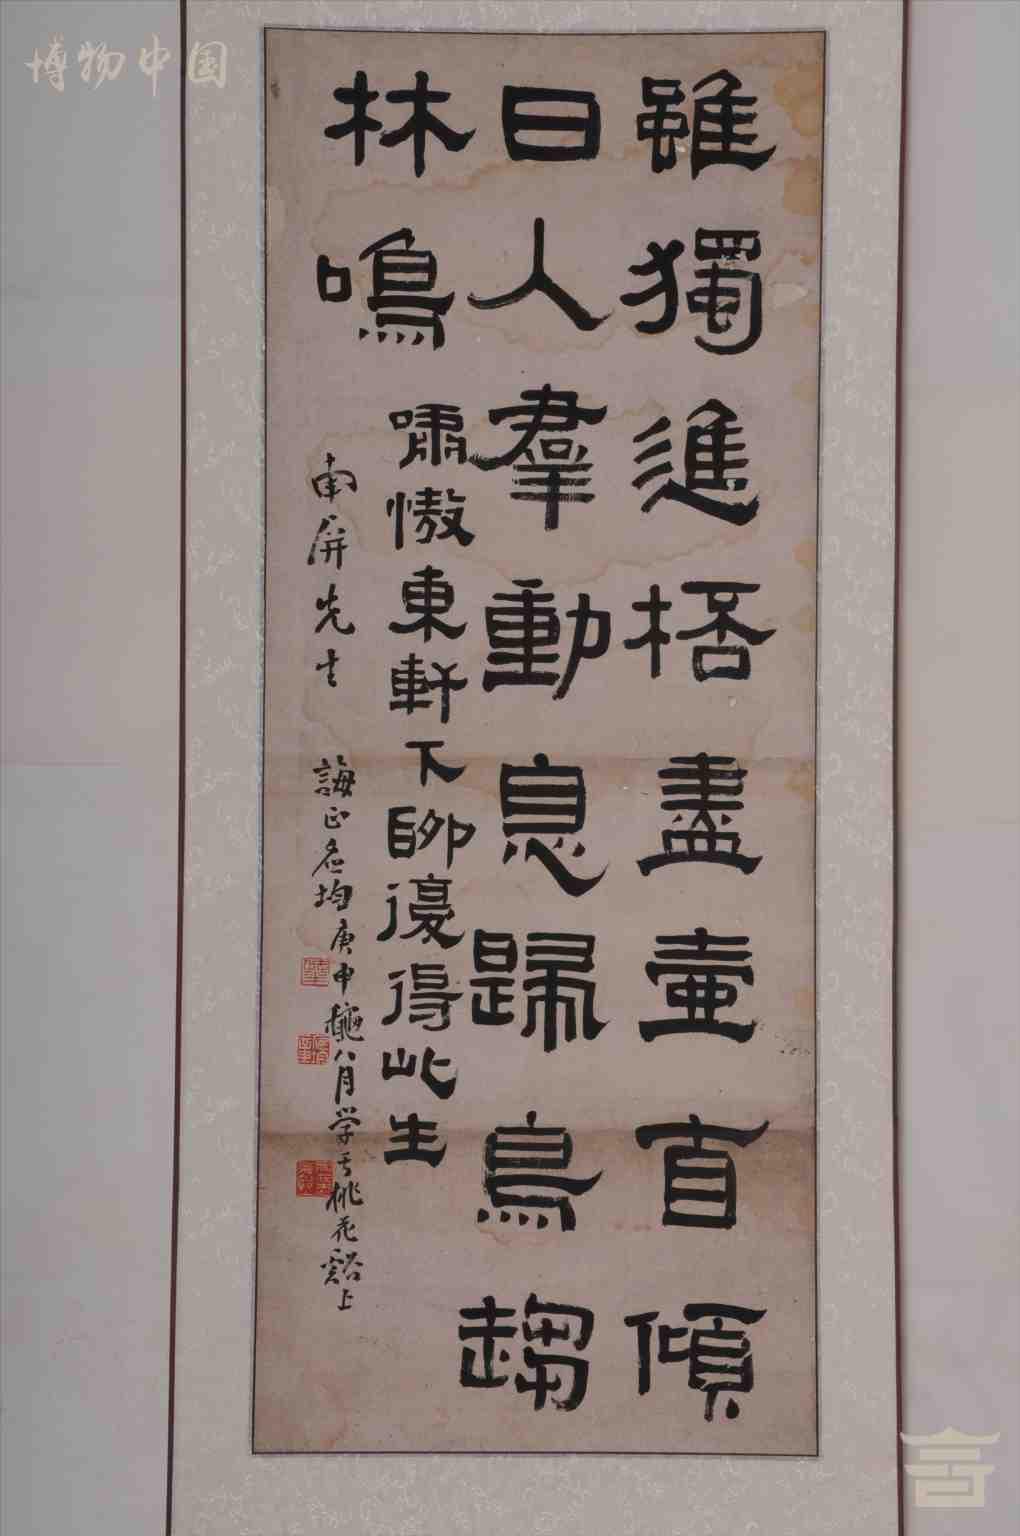 博物中国
雖獨進桮盡壺自傾
日人羣動息歸鳥趨
林鳴
嘯傲東軒下聊復得此生
南屏先生
誨正名均庚申秋八月学于桃花谿上